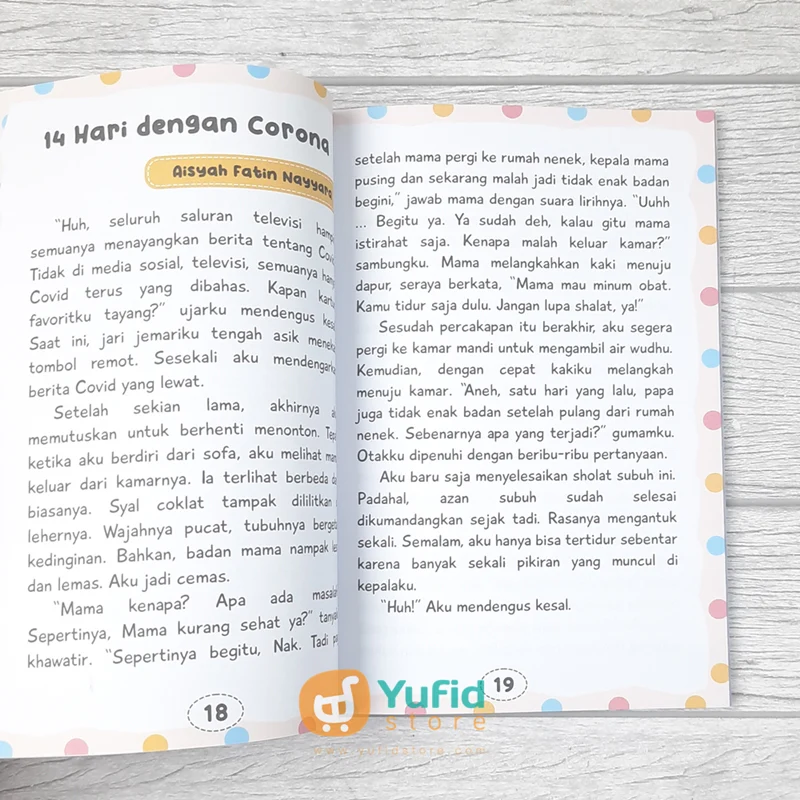 14 Hari dengan Corona
Aisyah Fatin Nayyara
"Huh, seluruh saluran televisi
semuanya menayangkan berita tentang
Tidak di media sosial, televisi, semuanya
Covid terus yang dibahas. Kapan
favoritku tayang?" ujarku mendengus
Saat ini, jari jemariku tengah asik
tombol remot. Sesekali aku
berita Covid yang lewat.
Setelah sekian lama, akhirnya
memutuskan untuk berhenti menonton.
ketika aku berdiri dari sofa, aku melihat
keluar dari kamarnya. Ia terlihat berbeda
biasanya. Syal coklat tampak dililitkan
lehernya. Wajahnya pucat, tubuhnya
kedinginan. Bahkan, badan mama nampak
dan lemas. Aku jadi cemas.
"Mama kenapa? Apa ada
Sepertinya, Mama kurang sehat ya?"
khawatir. "Sepertinya begitu, Nak. Tadi
18
setelah mama pergi ke rumah nenek, kepala mama
pusing dan sekarang malah jadi tidak enak badan
begini," jawab mama dengan suara lirihnya. "Uuhh
... Begitu ya. Ya sudah deh, kalau gitu mama
istirahat saja. Kenapa malah keluar kamar?"
sambungku. Mama melangkahkan kaki menuju
dapur, seraya berkata, "Mama mau minum obat.
Kamu tidur saja dulu. Jangan lupa shalat, ya!"
Sesudah percakapan itu berakhir, aku segera
pergi ke kamar mandi untuk mengambil air wudhu.
Kemudian, dengan cepat kakiku melangkah
menuju kamar. "Aneh, satu hari yang lalu, papa
juga tidak enak badan setelah pulang dari rumah
nenek. Sebenarnya apa yang terjadi?" gumamku.
Otakku dipenuhi dengan beribu-ribu pertanyaan.
Aku baru saja menyelesaikan sholat subuh ini.
Padahal, azan subuh sudah selesai
dikumandangkan sejak tadi. Rasanya mengantuk
sekali. Semalam, aku hanya bisa tertidur sebentar
karena banyak sekali pikiran yang muncul di
kepalaku.
"Huh!" Aku mendengus kesal.
19
Yufid
store
www.yufidstore.com